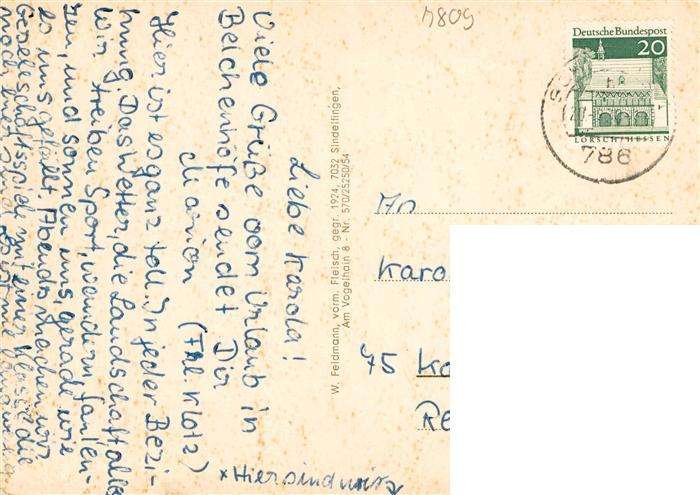 4809
Deutsche Bundespost
20
LORSCH/HESSEN
786
Liebe Karola!
Viele Grüße vom Urlaub in
Belchenhöfe sendet Dir
Marion (Frl. Klotz)
Hier ist es ganz toll. In jeder Bezi-
hung. Das Wetter, die Landschaft alles
Wir treiben Sport, wandern faulen-
zen, und sonnen uns, gerade wie
es uns gefällt. Abends machen wir
Gesellschaftsspiele mit einer Klasse die
noch mit
x Hier sind wir
W. Feldmann, vorm. Fleisch, gegr. 1924, 7032 Sindelfingen,
Am Vogelhain 8 - Nr. 570/25250/54
An
Karo
75 Ka
Re